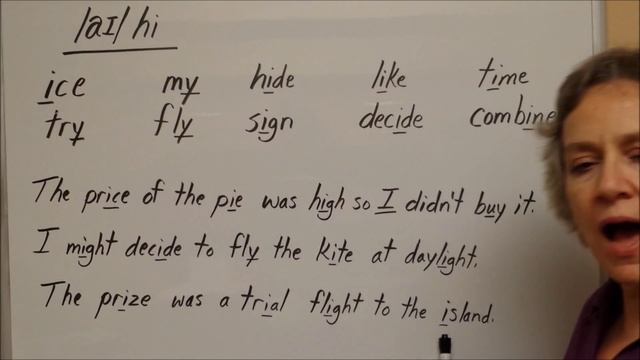 /aɪ/ hi
ice my hide like time
try fly sign decide combine
The price of the pie was high so I didn't buy it.
I might decide to fly the kite at daylight.
The prize was a trial flight to the island.